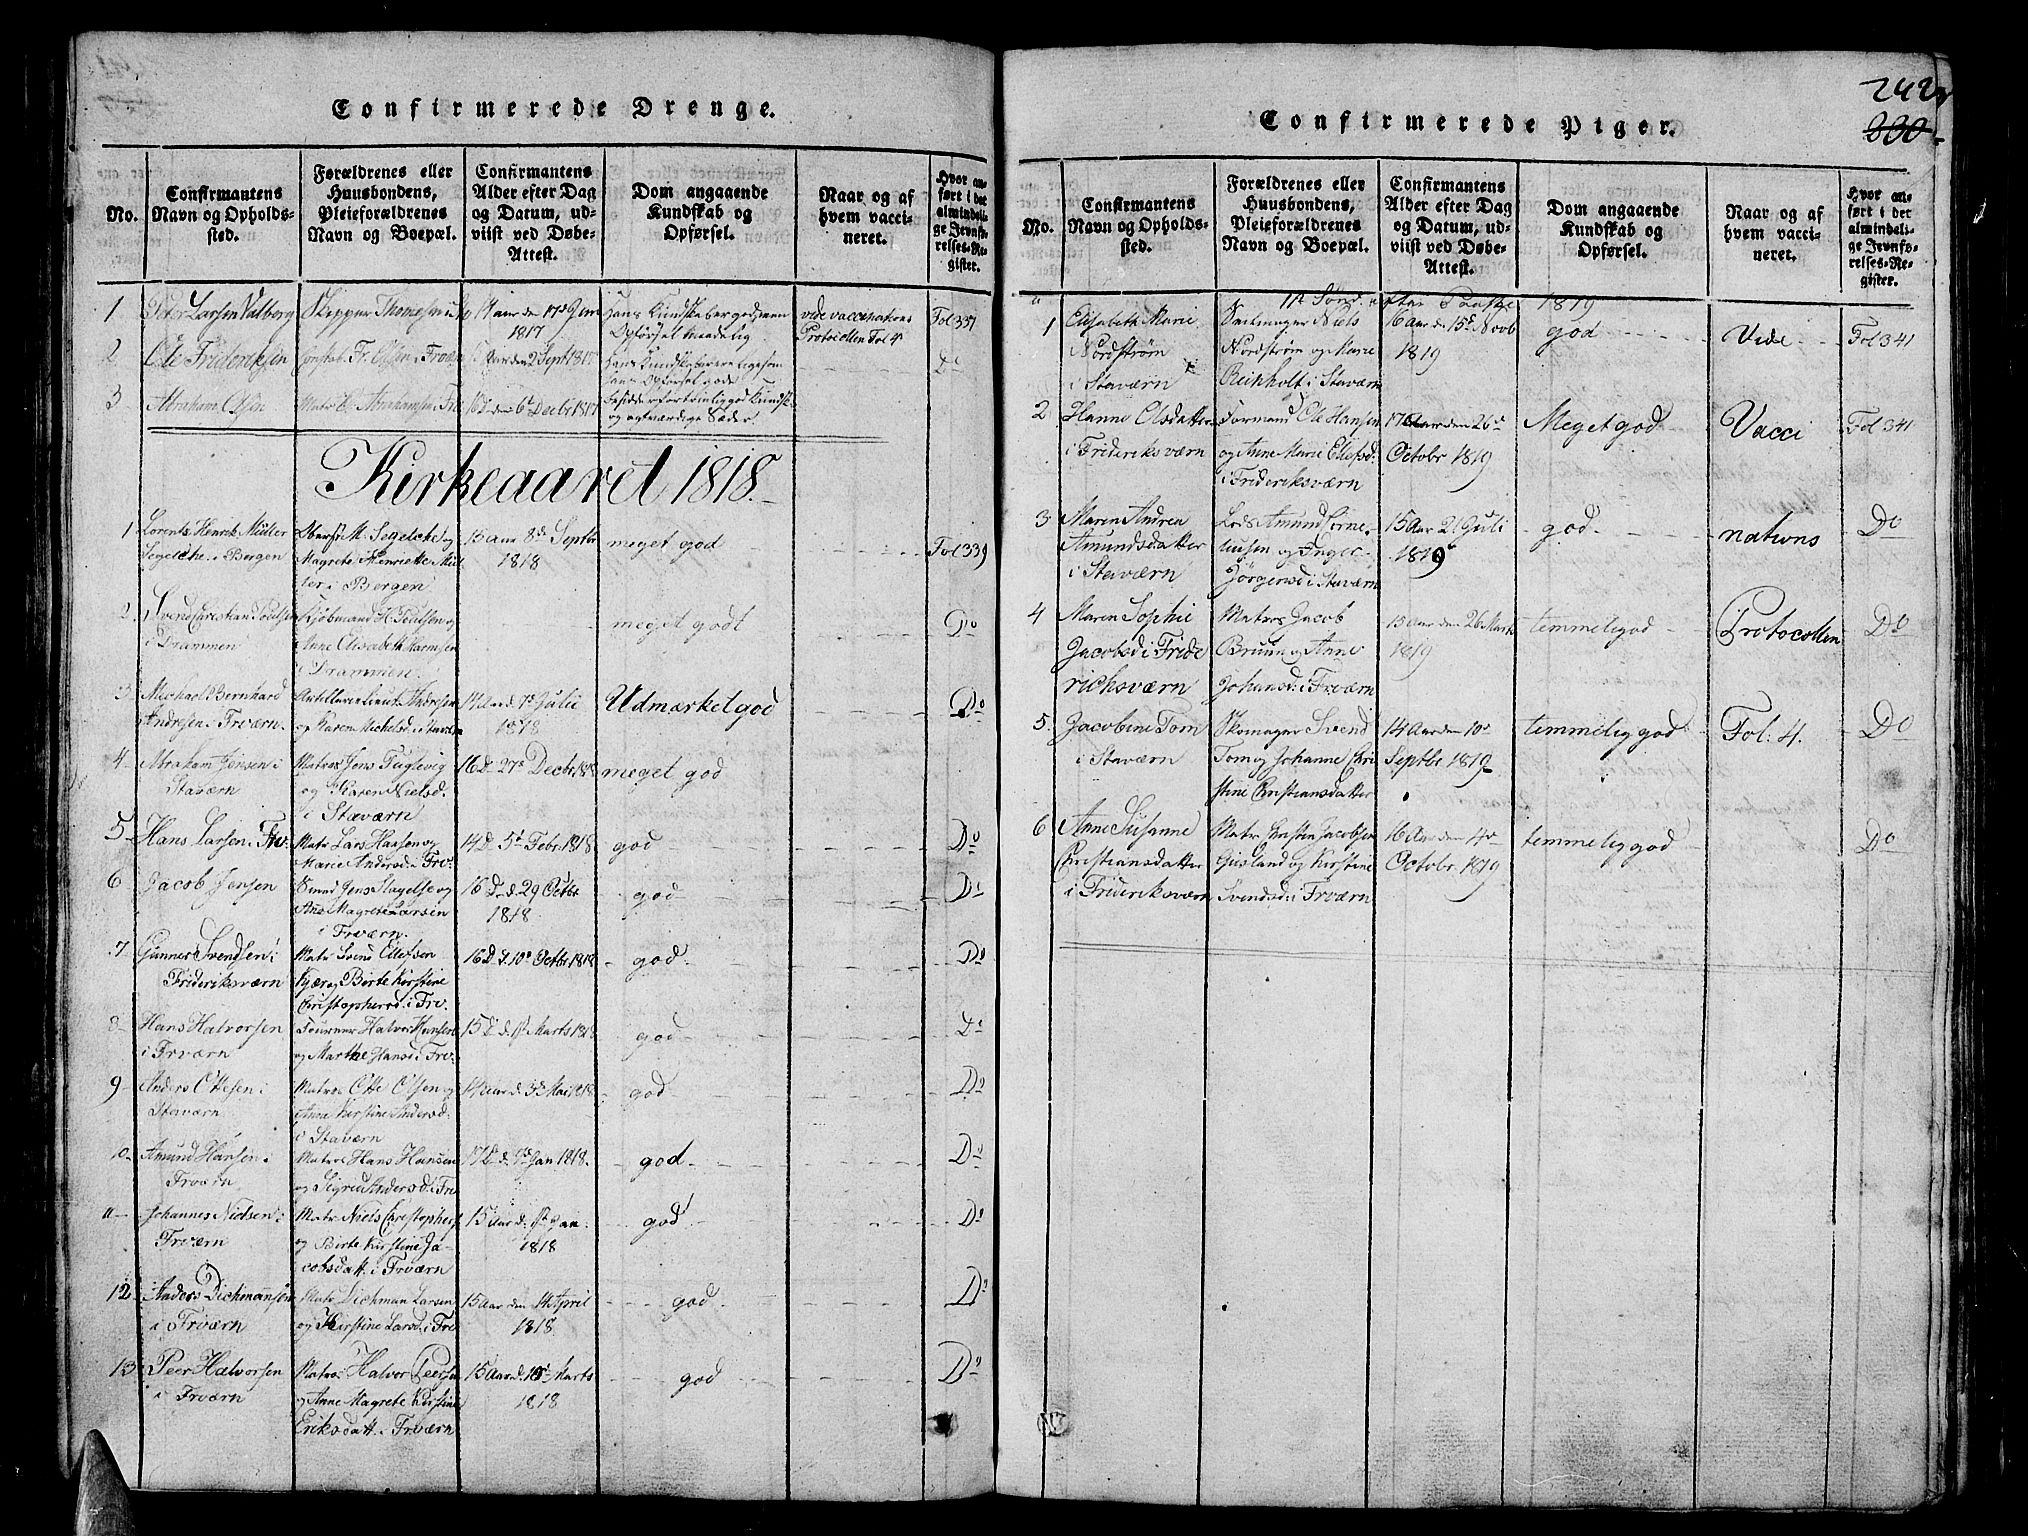 Confirmerede Drenge.
No.
Confirmantens
Navn og Opholds-
sted.
Forældrenes eller
Huusbondens,
Pleieforældrenes
Navn og Boepæl.
Confirmantens
Alder efter Dag
og Datum, ud-
viist ved Døbe-
Attest.
Dom angaaende
Kundskab og
Opførsel.
Naar og af
hvem vacci-
neret.
Hvor an-
ført i det
almindeli-
ge Jevnfø-
relses-Re-
gister.
1 Peder Larsen Valberg Skipper
14 aar den 17de Juni
1817
Hans Kundskaber god men
Opførsel maadelig
vide vaccinations
Protocollen Fol 4
Fol 337
2 Ole Frideriksen
2 Sept 1817
Do
3 Abraham Olsen
16 D. den 6te Decbr 1817
Kirkeaaret 1818.
1 Lorents Henrik Müller
Segelche i Bergen
Oberst M. Segelche og
Magrete Henriette Mül
ler i Bergen
15 aar 8de Septbr
1818
meget god
Fol 339
2 Svend Christian Poulsen
i Drammen
Kjøbmand H. Poulsen og
Anne Elisabeth Harmsen
i Drammen
meget godt
Do
3 Michael Bernhard
Andresen i Frværn.
Artillerie Lieut. Andresen
og Karen Michelsd. i Stavern
14 Aar d. 7de Julii
1818
Udmærket god
Do
4 Abraham Jensen i
Staværn
Matros Jens Fuglevig
og Karen Nielsd.
i Staværn
16 D. 27de Decbr 1818
meget god
5 Hans Larsen i Frv.
Matr Lars Hansen og
Marie Andersd. i Frv.
14 D. 5te Febr. 1818
god
Do
6 Jacob Jensen
Smed Jens Slagelse og
Ane Magrete Larsen
i Frværn.
16 D. d. 29 Octbr
1818
god
Do
7 Gunner Svendsen i
Frideriksværn
Matr Svend Ellefsen
Kjær og Birte Kirstine
Christophersd. i Frv.
16 D. d. 10de Octbr 1818
god
Do
8 Hans Halvorsen
i Frværn
Tourner Halvor Hansen
og Marthe Hansd. i Frv.
15 D. d. 1st Marts 1818
god
Do
9 Anders Ottesen i
Staværn
Matros Otte Olsen og
Anna Kirstine Andersd.
i Staværn
14 aar d. 3de Mai 1818
god
Do
10 Amund Hansen i
Frværn
Matros Hans Hansen
og Sigrid Andersd. i Frv
17 D. d. Jan 1818.
god
Do
11 Johannes Nielsen i
Frværn
Matr. Niels Christophers
og Birte Kirstine Ja-
cobsdatt. i Frværn
15 aar d. 1st Jan
1818
god
Do
12 Anders Dichmansen
i Frværn
Matr Dichman Larsen
og Kirstine Larsd. i Frv
15 Aar den 14 April
1818
god
Do
13 Peer Halvorsen
i Frværn
Matros Halvor Peersen
og Anne Magrete Kirstine
Eriksdatt. i Frværn
15 Aar d. Marts
1818
god
Do
Confirmerede Piger.
242
230
No.
Confirmantens
Navn og Opholds-
sted.
Forældrenes eller
Huusbondens,
Pleieforældrenes
Navn og Boepæl.
Confirmantens
Alder efter Dag
og Datum, ud-
viist ved Døbe-
Attest.
Dom angaaende
Kundskab og
Opførsel.
Naar og af
hvem vacci-
neret.
Hvor an-
ført i det
almindeli-
ge Jevnfø-
relses-Re-
gister.
1st Sønd. efter Paaske 1819
1 Elisabeth Marie
Nordstrøm
i Staværn
Seilmager Niels
Nordstrøm og Marie
Reinholt i Staværn
16 Aar d. 15de Novb
1819
god
Vide
Fol 341
2 Hanne Olsdatter
i Frideriksværn
Formand Ole Hansen
og Anne Marie Ellefsd.
i Frideriksværn
17 Aar den 26de
Octobr 1819
Meget god
Vacci
Fol 341
3 Maren Andrea
Amundsdatter
i Staværn
Lods Amund Corne-
liusen og Inger
Jörgensd i Staværn
15 Aar 21 Juli
1819
god
nations
Do
4 Maren Sophie
Jacobsd i Fride
richsværn
Matros Jacob
Bruun og Anne
Johansd. i Frværn
15 Aar den 26 Marts
1819
temmelig god
Protocollen
Do
5. Jacobine Tom
i Staværn
Skomager Svend
Tom og Johanne Chri
stine Christiansdatter
14 Aar den 10de
Septbr 1819
temmelig god
Fol: 4.
Do
6 Anne Susanne
Christiansdatter
i Frideriksværn
Matr Christen Jacobsen
Gusland og Kirstine
Svendsd. i Frværn
16 Aar den 4de
Octobr 1819
temmelig god
Do